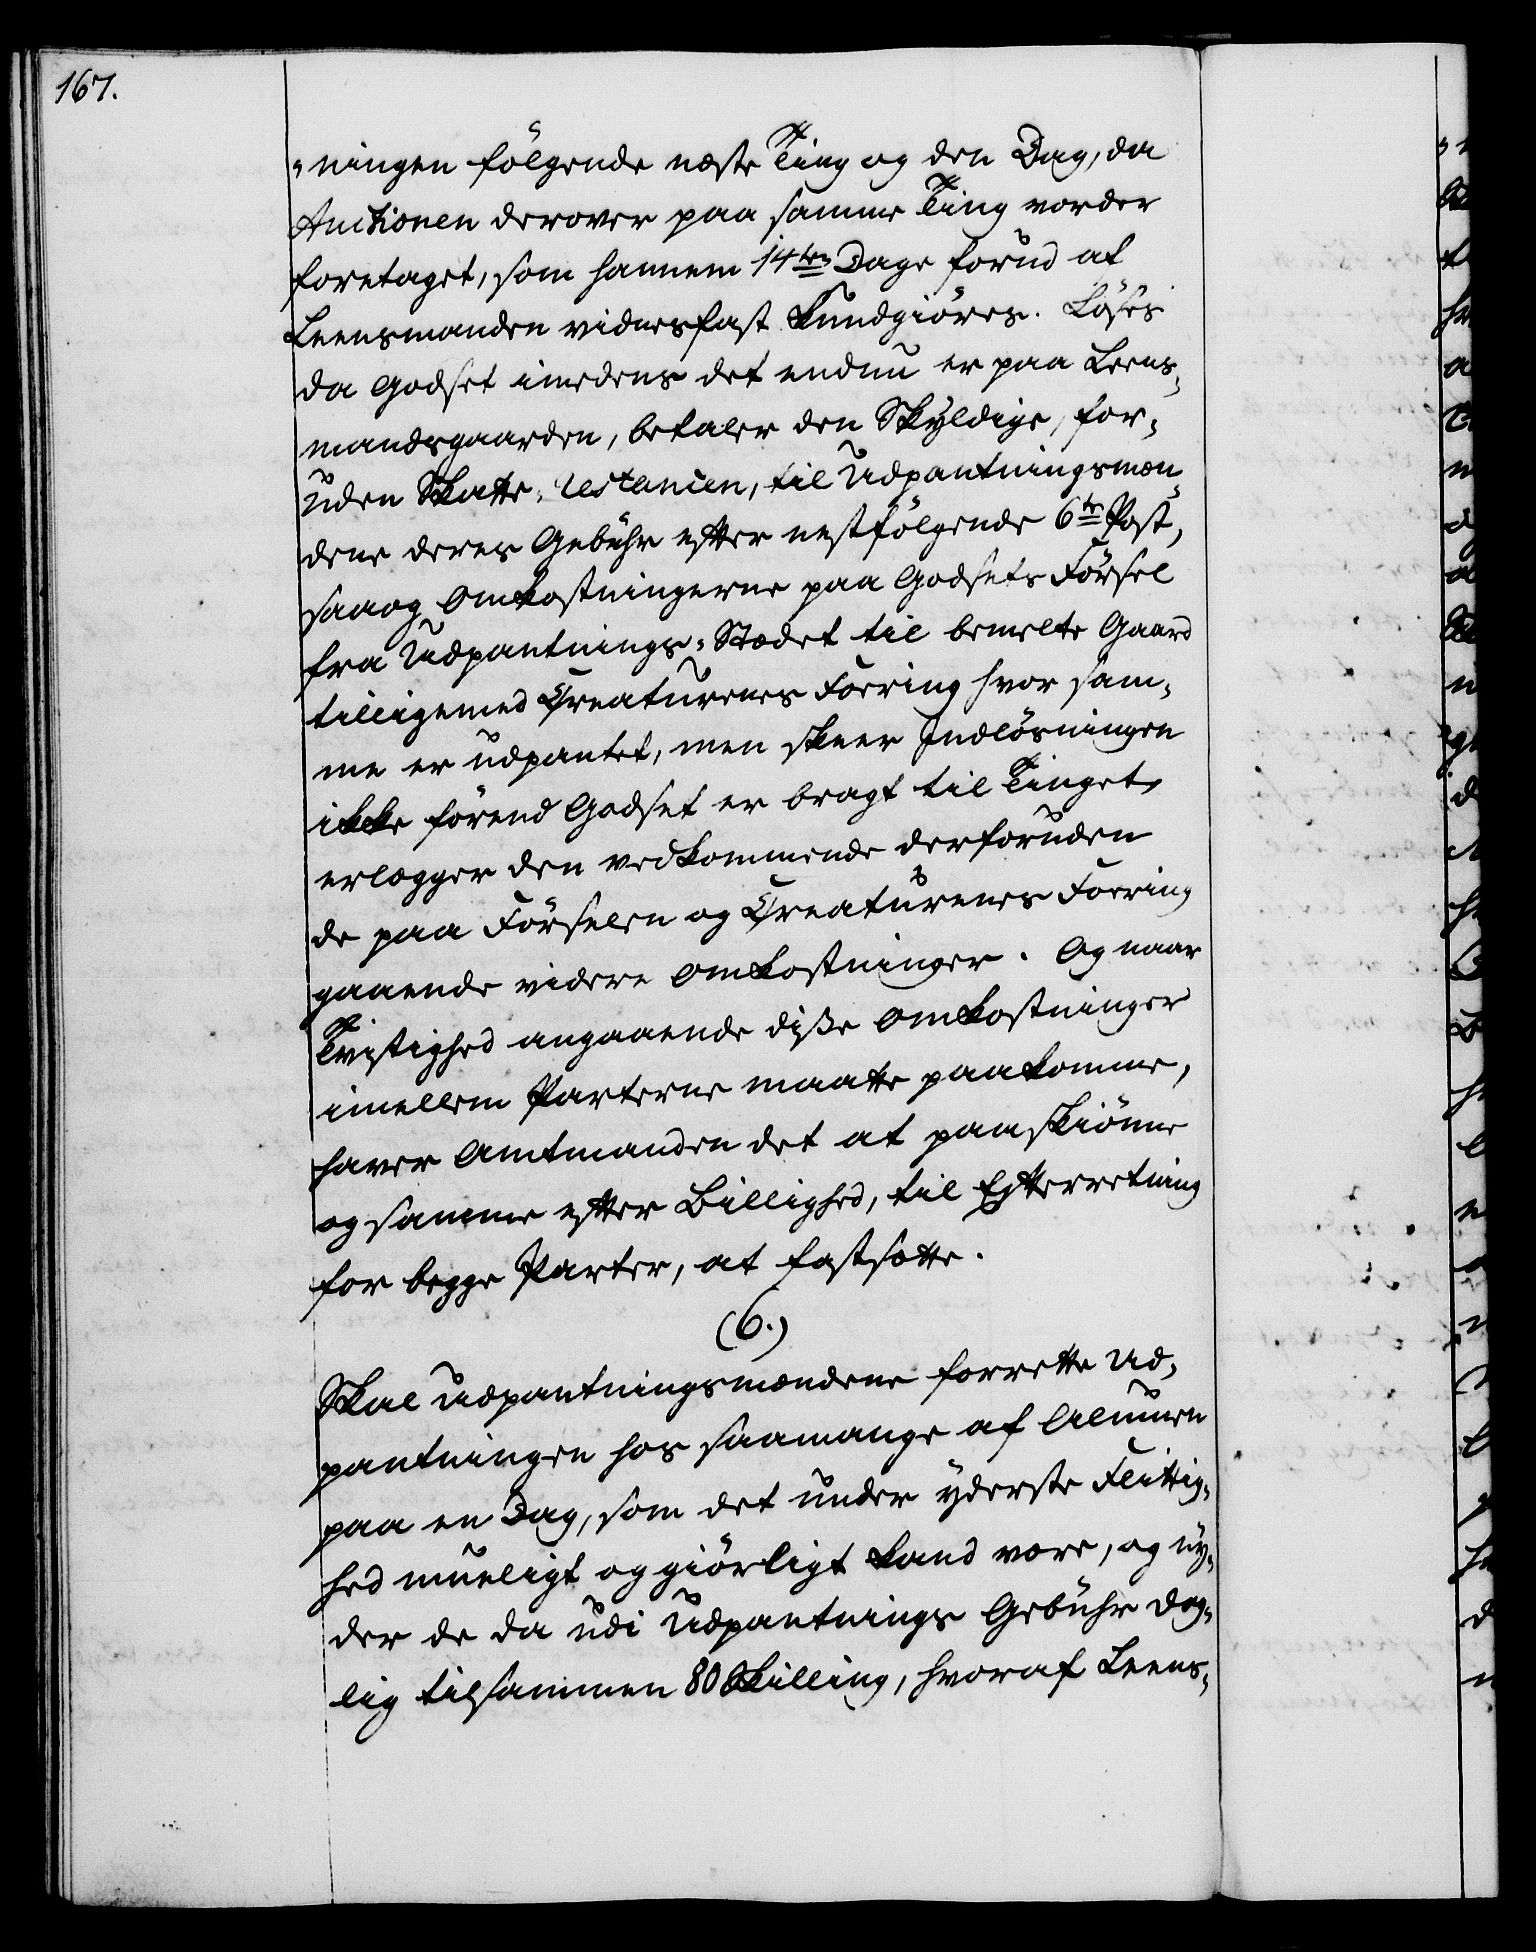 167.
-ningen fölgende næste Ting og den Dag, da
Auctionen derover paa samme Ting vorder
foretaget, som hannem 14ten Dage forud af
Leensmanden vidnesfast kundgiöres. Löses
da Godset imedens det endnu er paa Leens-
mandsgaarden, betaler den Skyldige, for-
uden Skatte-Restancen, til Udpantningsmæn-
dene deres Gebühr efter nestfölgende 6te Post,
saaog Omkostningerne paa Godsets Försel
fra Udpantnings-Stædet til bemelte Gaard
tilligemed Creaturenes Foering hvor sam-
me er udpantet, men skeer Indlösningen
ikke förend Godset er bragt til Tinget,
erlægger den vedkommende derforuden
de paa Förselen og Creaturenes Foering
gaaende videre Omkostninger. Og naar
Tvistighed angaaende diße Omkostninger
imellem Parterne maatte paakomme,
haver Amtmanden det at paaskiönne
og samme efter Billighed, til Efterretning
for begge Parter, at fastsætte.
(6.)
Skal Udpantningsmændene forrette Ud-
pantningen hos saamange af Almuen
paa en Dag, som det under yderste Flittig-
hed mueligt og giörligt kand være, og ny-
der de da udi Udpantnings Gebühr dag-
lig tilsammen 80 Skilling, hvoraf Leens-